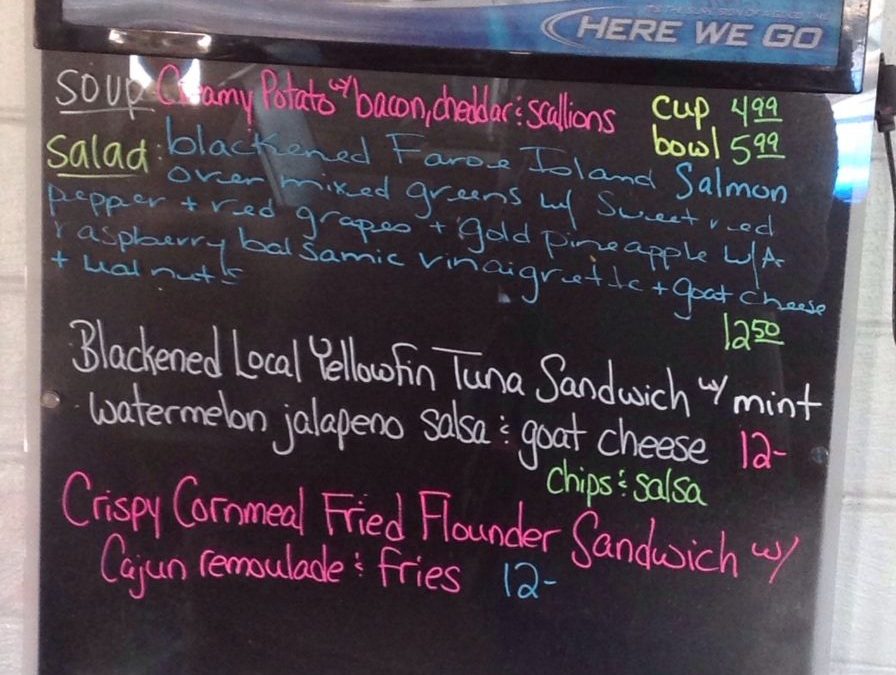 HERE WE GO
SOUP Creamy Potato w/ bacon, cheddar & scallions cup 4.99
bowl 5.99
Salad: blackened Faroe Island Salmon
over mixed greens w/ Sweet red
pepper + red grapes + gold pineapple w/ A
raspberry balsamic vinaigrette + goat cheese
+ walnuts
12.50
Blackened Local Yellowfin Tuna Sandwich w/ mint
watermelon jalapeno salsa & goat cheese 12-
chips & salsa
Crispy Cornmeal Fried Flounder Sandwich w/
Cajun remoulade & fries 12-